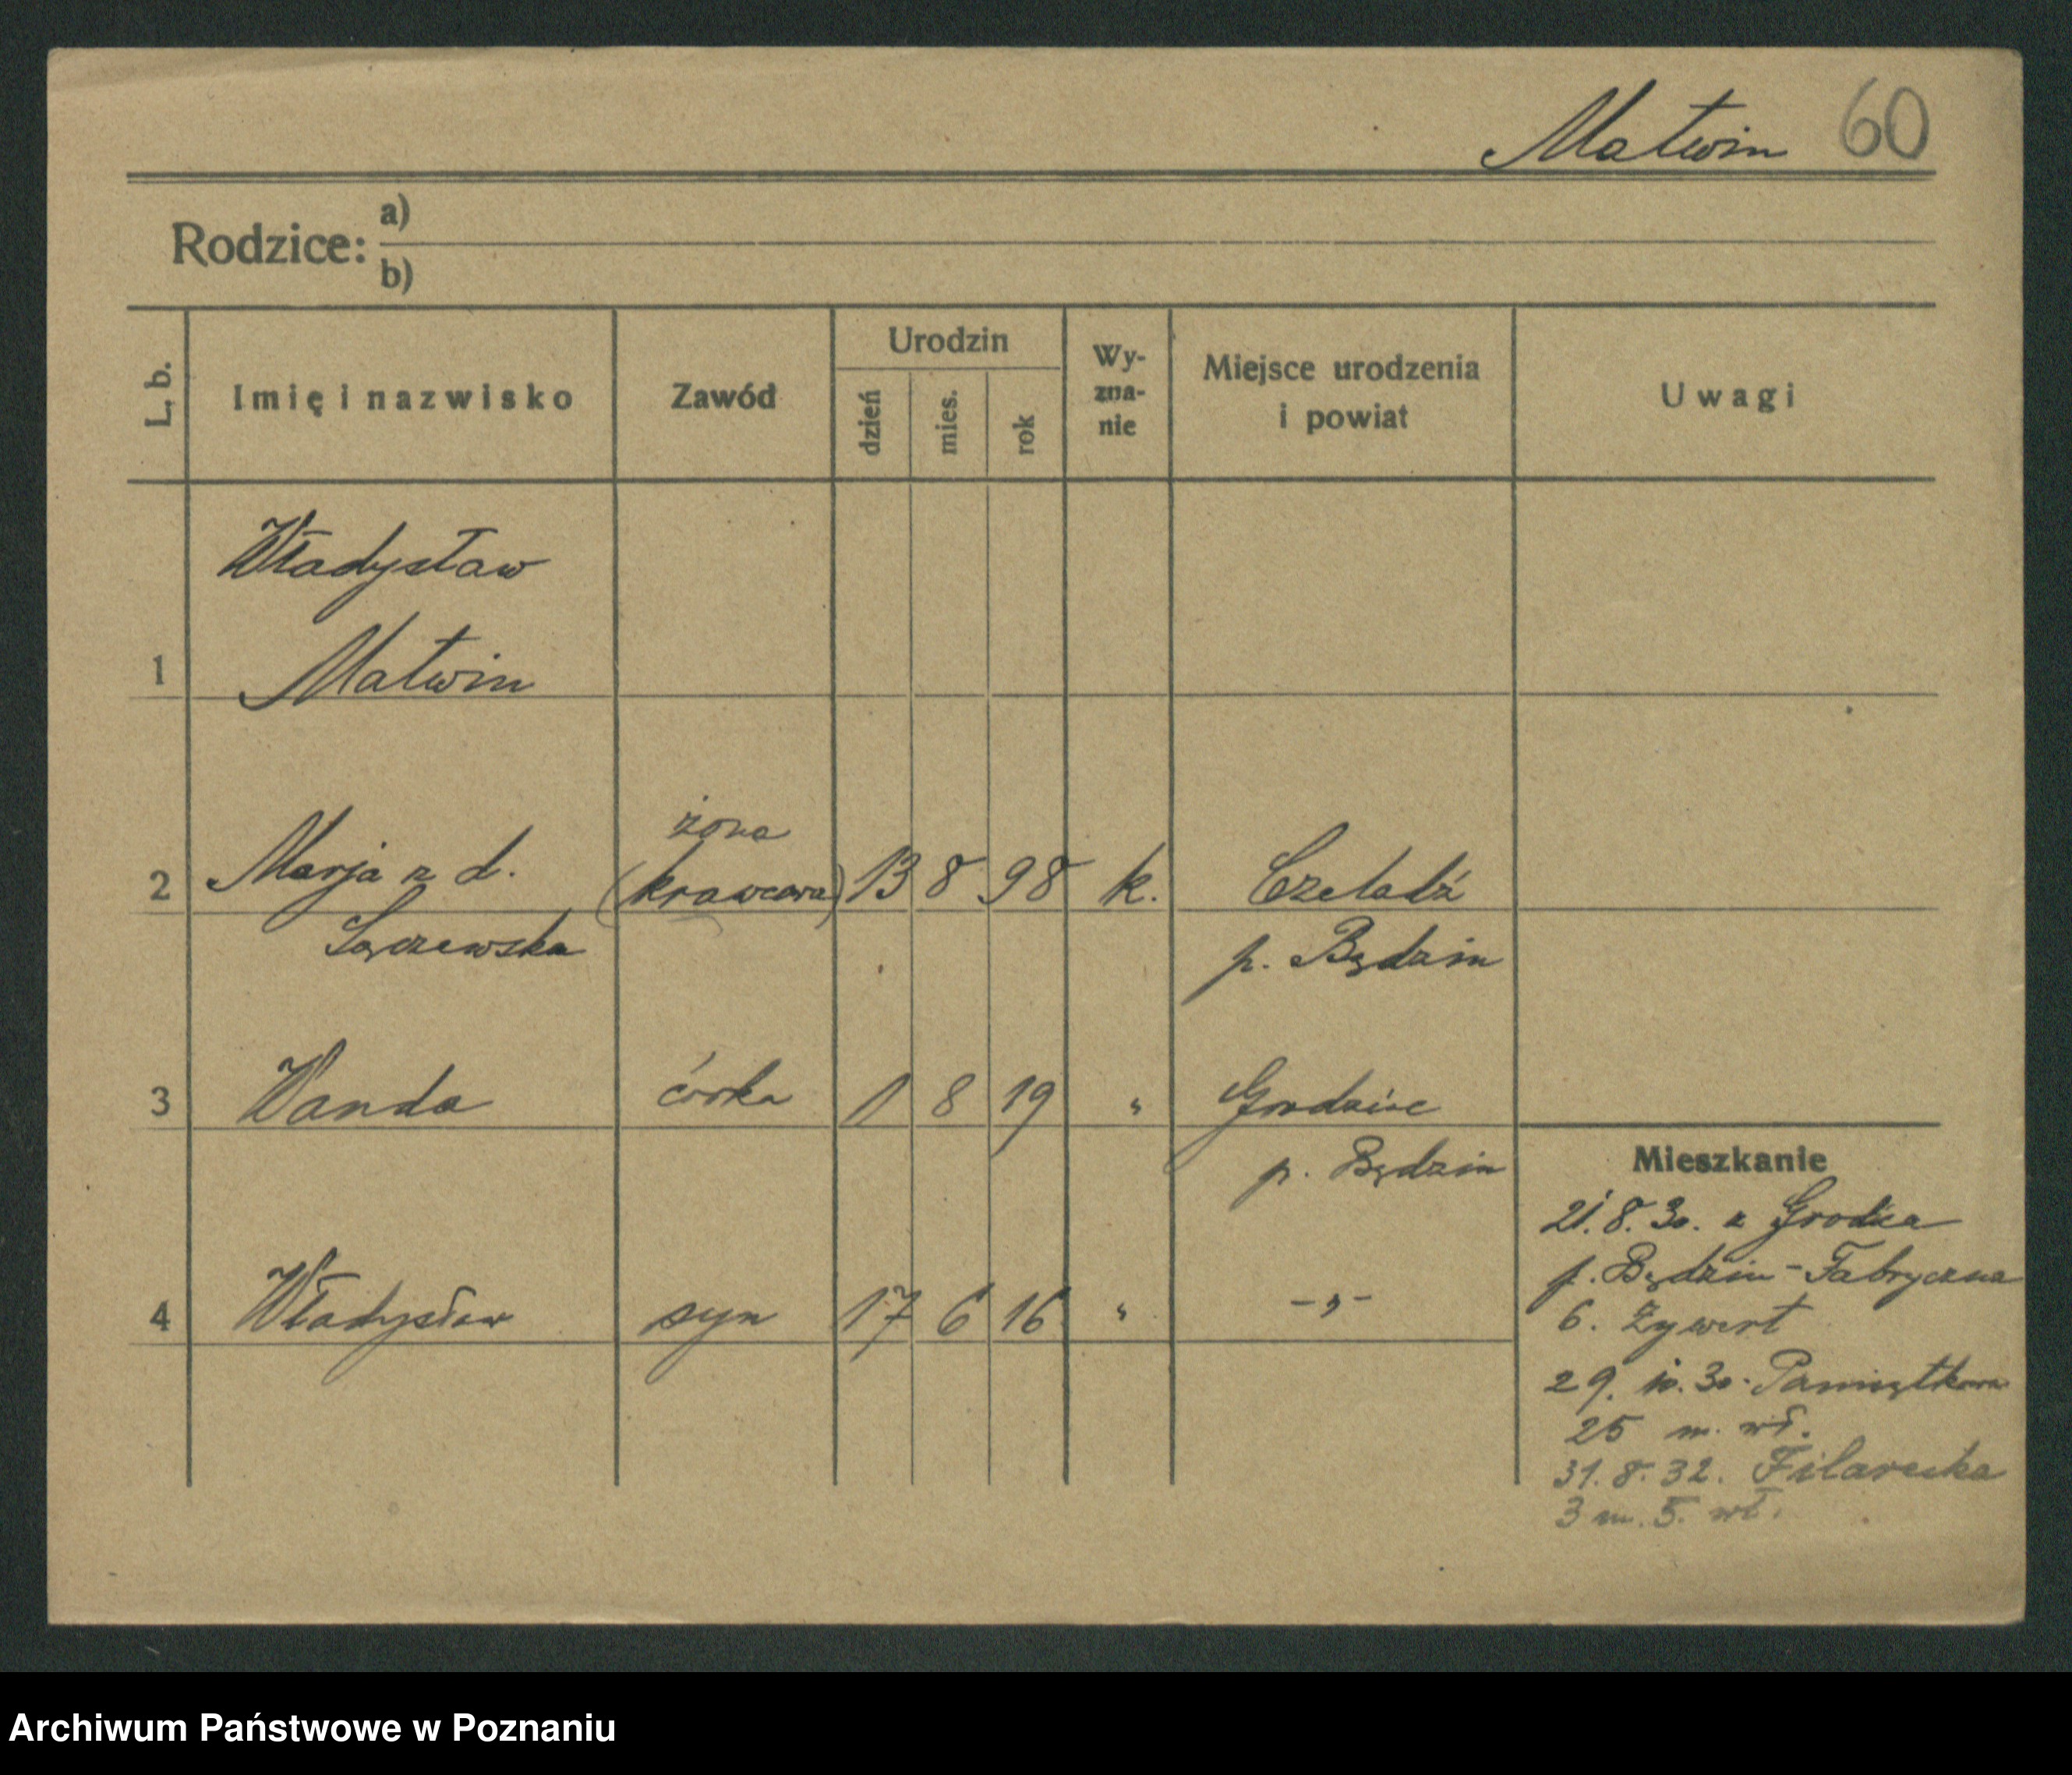 Matwin 60
Rodzice: a)
b)
L. b.
Imię i nazwisko
Zawód
Urodzin
dzień
mies.
rok
Wy-
zna-
nie
Miejsce urodzenia
i powiat
Uwagi
Władysław
1 Matwin
żona
2 Marja z d. (krawcowa) 13 8 98 k. Czeladź
Sączewska p. Będzin
3 Wanda córka 1 8 19 " 
p. Będzin
4 Władysław syn 17 6 16 " -"-
Mieszkanie
21.8.30. z
p. Będzin - Fabryczna
6. Żywert
29. 10. 30. Pamiątkowa
25 m. wł.
31. 8. 32. Filarecka
3 m. 5. wł.
Archiwum Państwowe w Poznaniu